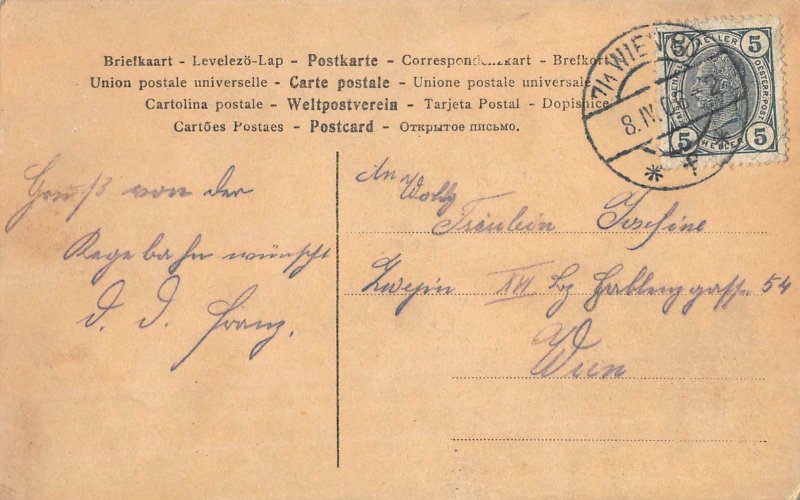 Briefkaart - Levelező-Lap - Postkarte - Correspondenzkart - Brefkort
Union postale universelle - Carte postale - Unione postale universale
Cartolina postale - Weltpostverein - Tarjeta Postal - Dopisnice
Cartões Postaes - Postcard - Открытое письмо.
WIEN
8.IV.
5 HELLER 5
OESTERR.POST
5 HELLER 5
Gruß von der
Kegebahn wünscht
d. d. Franz.
An
Wollg
Fräulein Josefine
XVI Bz Gablenzgasse 54
Wien